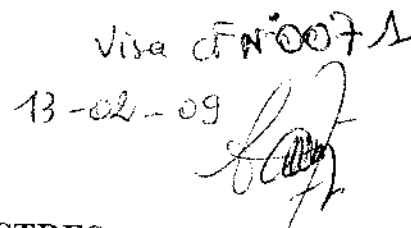 Visa CF N°0071
13-02-09